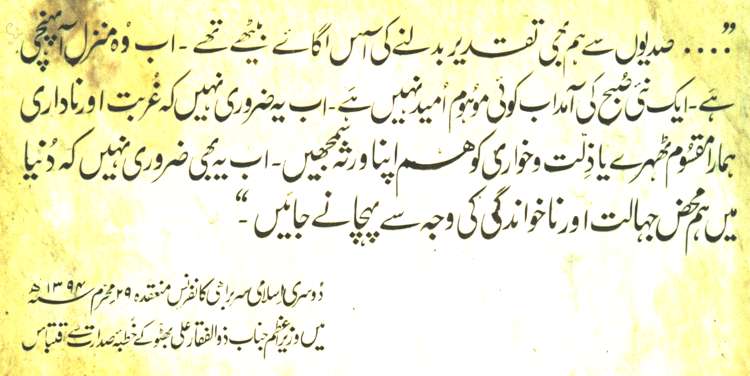 ”.... صدیوں سے ہم بھی تقدیر بدلنے کی آس لگائے بیٹھے تھے ۔ اب وُہ منزل آپہنچی
ہے ۔ ایک نئی صُبح کی آمد اب کوئی موہُوم اُمید نہیں ہے ۔ اب یہ ضروری نہیں کہ غُربت اور ناداری
ہمارا مقسُوم ٹھہرے یا ذِلّت و خواری کو ہم اپنا ورثہ سمجھیں ۔ اب یہ بھی ضروری نہیں کہ دُنیا
میں ہم محض جہالت اور ناخواندگی کی وجہ سے پہچانے جائیں ۔“
دُوسری اِسلامی سربراہی کانفرنس منعقدہ ۲۹ محرم ۱۳۹۴ھ
میں وزیرِ اعظم جناب ذوالفقار علی بھٹو کے خُطبۂ صدارت سے اقتباس